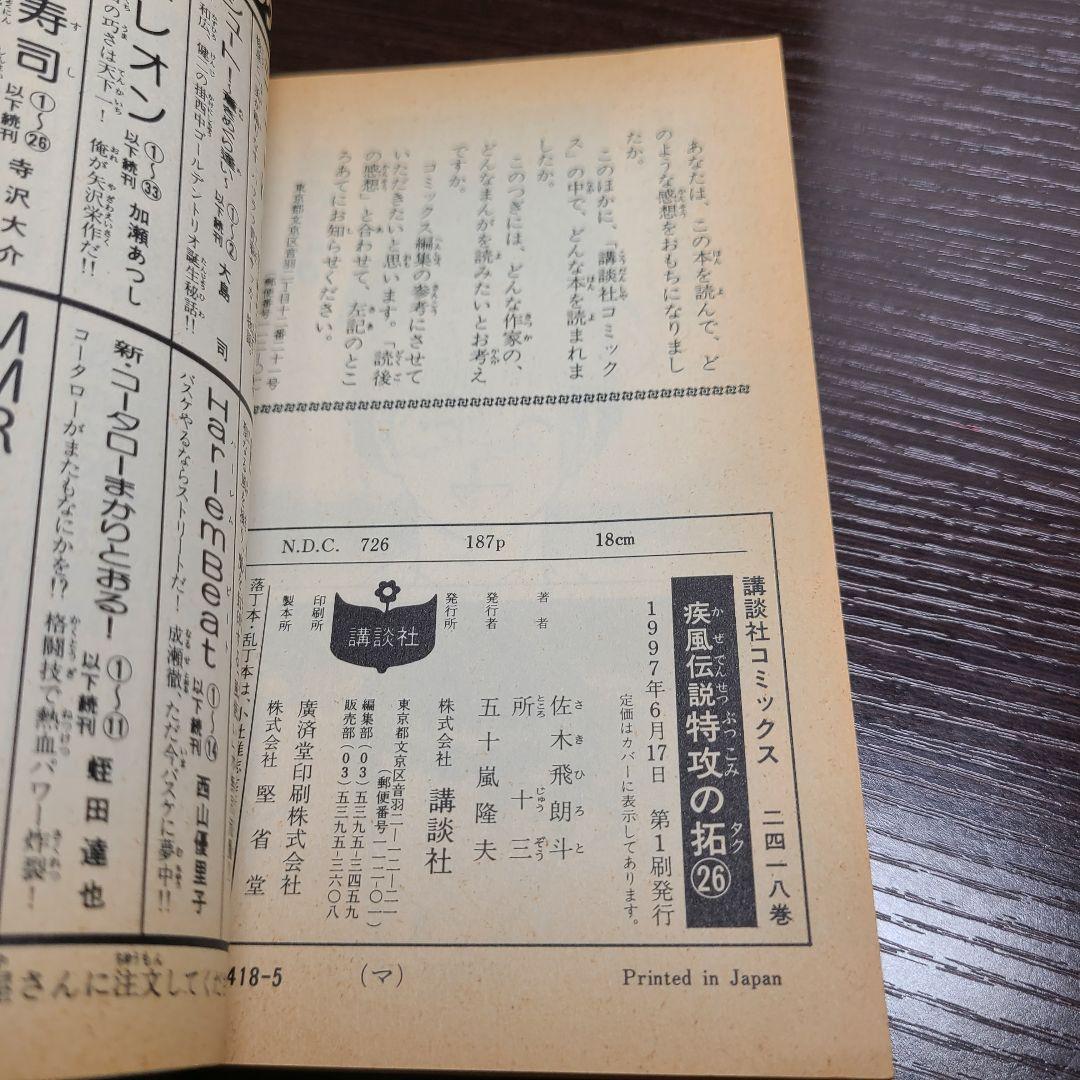 あなたは、この本を読んで、ど
のような感想をおもちになりまし
たか。
このほかに、「講談社コミック
ス」の中で、どんな本を読まれま
したか。
このつぎには、どんな作家の、
どんなまんがを読みたいとお考え
ですか。
コミックス編集の参考にさせて
いただきたいと思います。「読後
の感想」と合わせて、左記のとこ
ろあてにお知らせください。
東京都文京区音羽二丁目十二番二十一号
N.D.C. 726 187p 18cm
講談社コミックス 二四一八巻
疾風伝説特攻の拓㉖
かぜでんせつぶっこみ タク
1997年6月17日 第1刷発行
定価はカバーに表示してあります。
著者 佐木飛朗斗
さきひろと
所十三
ところじゅうぞう
発行者 五十嵐隆夫
発行所 株式会社 講談社
東京都文京区音羽二−一二−二一
(郵便番号一一二−〇一)
編集部(03)五三九五−三四五九
販売部(03)五三九五−三六〇八
講談社
印刷所 廣済堂印刷株式会社
製本所 株式会社 堅省堂
落丁本・乱丁本は、
418-5 (マ) Printed in Japan
大島 司
①〜②以下続刊
和広、健二の掛西中ゴールデントリオ誕生秘話!!
レオン
①〜㉝以下続刊 加瀬あつし
の巧さは天下一! 俺が矢沢栄作だ!!
寿司
①〜㉖以下続刊 寺沢大介
Harlem Beat
ハーレムビート
①〜⑭以下続刊 西山優里子
バスケやるならストリートだ! 成瀬徹、ただ今バスケに夢中!!
新・コータローまかりとおる!
①〜⑪以下続刊 蛭田達也
コータローがまたもなにかを!? 格闘技で熱血パワー炸裂!
MMR
さんに注文してくだ